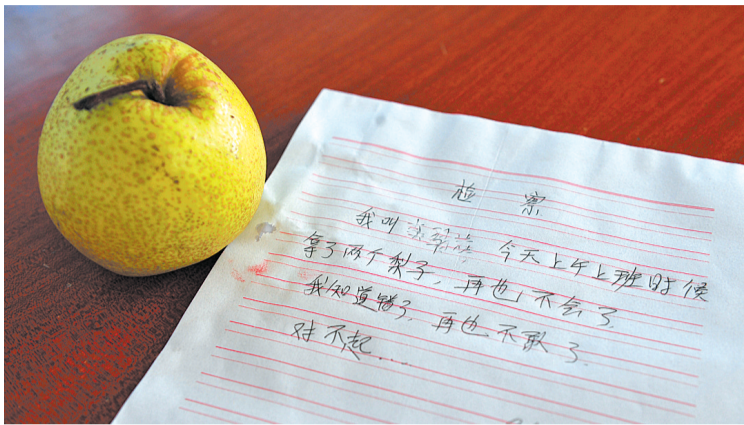 检察
我叫 今天上午上班时候
拿了两个梨子，再也不会了
我知道错了，再也不敢了
对不起....